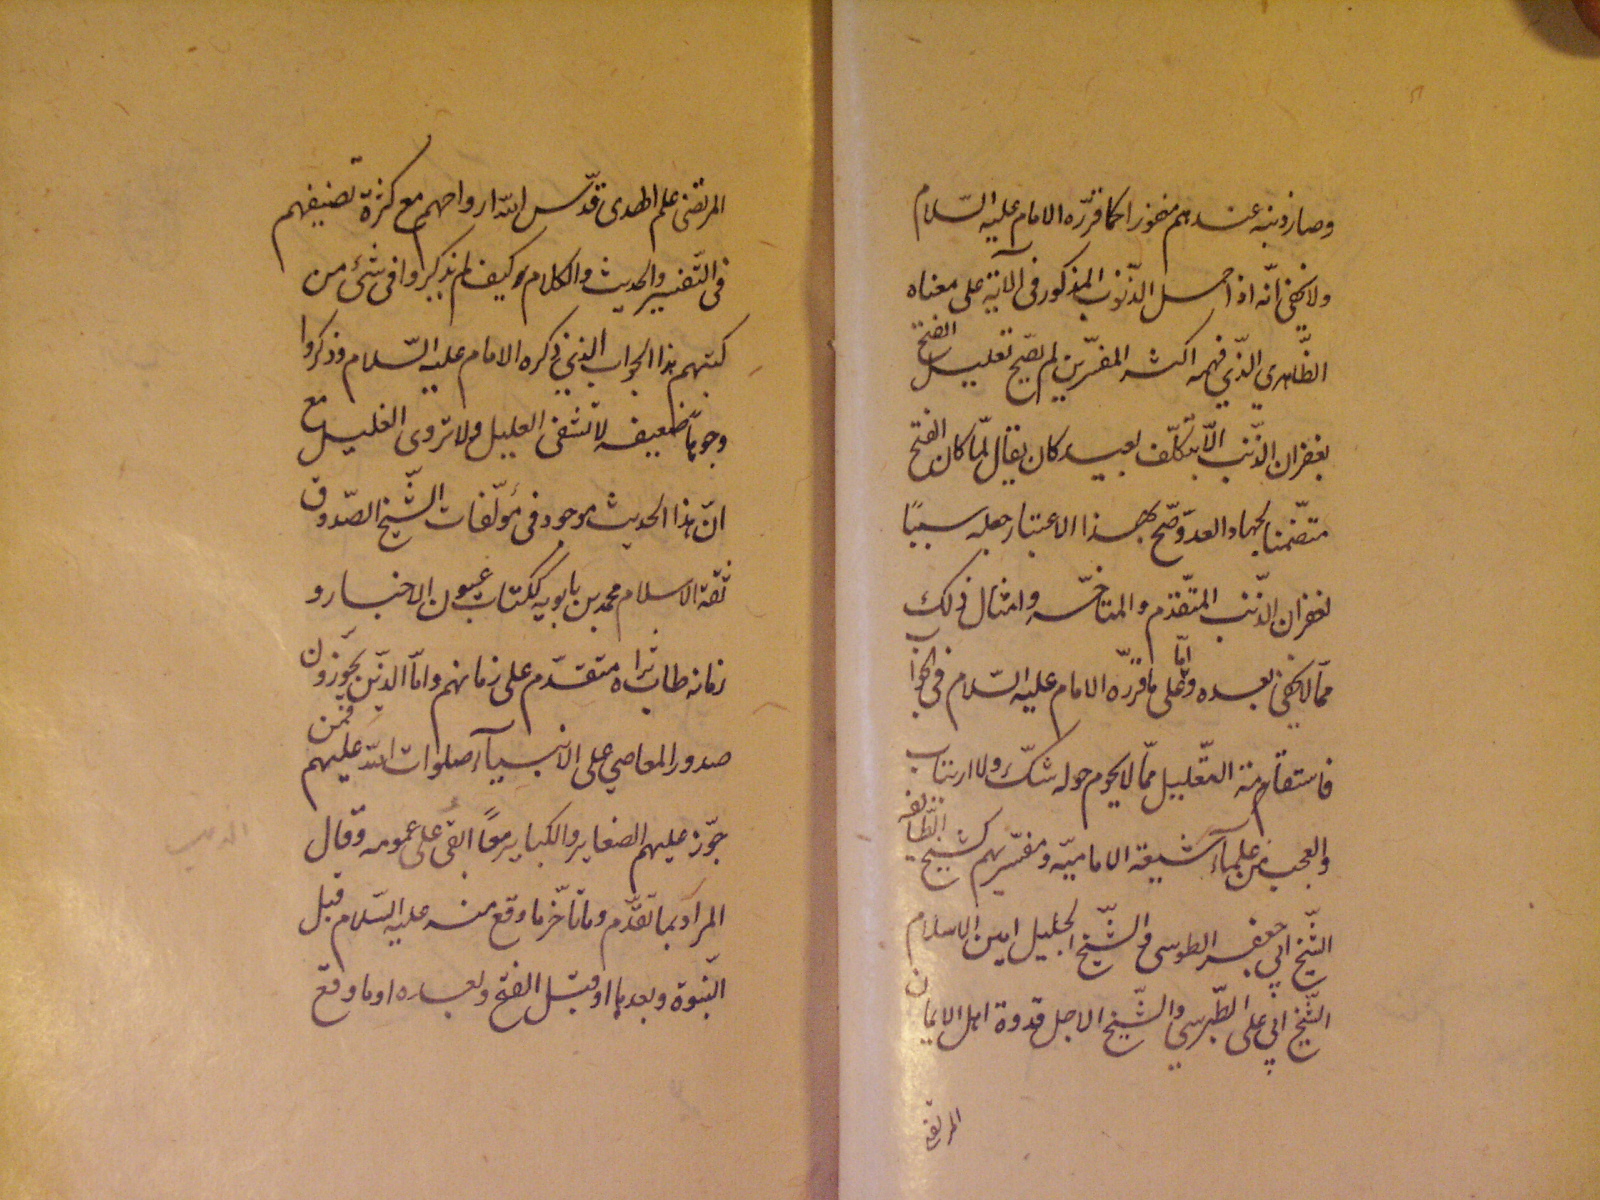 وصار ذنبه عندهم مغفورا كما قرّره الامام عليه السّلام
ولا يخفى انّه اذا حمل الذّنوب المذكور فى الآية على معناه
الظّاهري الّذي فهمه اكثر المفسّرين لم يصّح تعليل الفتح
بغفران الذّنب الّا بتكلّف بعيد كان يقال لمّا كان الفتح
متضّمنا لجهاد العدوّ صّح بهذا الاعتبار جعله سببًا
لغفران الذّنب المتقدّم والمتاخّر وامثال ذلك
ممّا لا يخفى بعده وامّا على ما قرّره الامام عليه السّلام فى الجواب
فاستقامة التعّليل ممّا لا يحوم حوله شكّ ولا ارتياب
والعجب من علمآء شيعة الاماميّه ومفسّريهم كشيخ الطّائفه
الشّيخ ابي جعفر الطوسى والشّيخ الجليل امين الاسلام
الشّيخ ابي على الطّبرسي والشّيخ الاجل قدوة اهل الايمان
المرتضى
المرتضى علم الهدى قدّس اللّه ارواحهم مع كثرة تصنيفهم
فى التّفسير والحديث والكلام كيف لم يذكروا فى شئ من
كتبهم هذا الجواب الذي ذكره الامام عليه السّلام وذكروا
وجوهًا ضعيفه لا تشفى العليل ولا تروى الغليل مع
انّ هذا الحديث موجود فى مؤلّفات الشّيخ الصّدوق
ثقة الاسلام محمد بن بابويه ككتاب عيون الاخبار و
زمانه طاب ثراه متقدّم على زمانهم وامّا الذّين يجوّزون
صدور المعاصي على الانبيآء صلوات اللّه عليهم فمن
جوّز عليهم الصغاير والكباير معًا ابقى على عمومه وقال
المراد بما تقدّم وما تأخّر ما وقع منه عليه السّلام قبل
النّبوة وبعدها او قبل الفتح وبعده او ما وقع